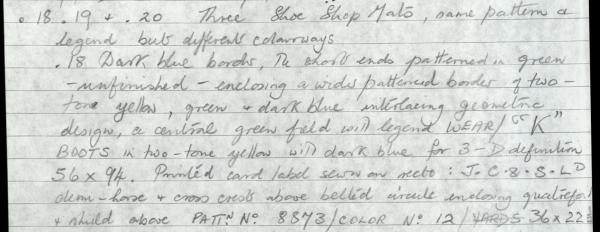 . 18 . 19 + . 20 Three Shoe Shop Mats, same pattern &
legend but different colourways
. 18 Dark blue border, the short ends patterned in green
- unfinished - enclosing a wider patterned border of two-
tone yellow, green + dark blue interlacing geometric
design, a central green field with legend WEAR/ "K"
BOOTS in two-tone yellow with dark blue for 3-D definition
56 x 94. Printed card label sewn on recto : J. C. & S. LD
demi-horse + cross crests above belted circle enclosing quatrefoil
+ shield above PATTN No 8373/COLOR No 12/ YARDS 36 x 22